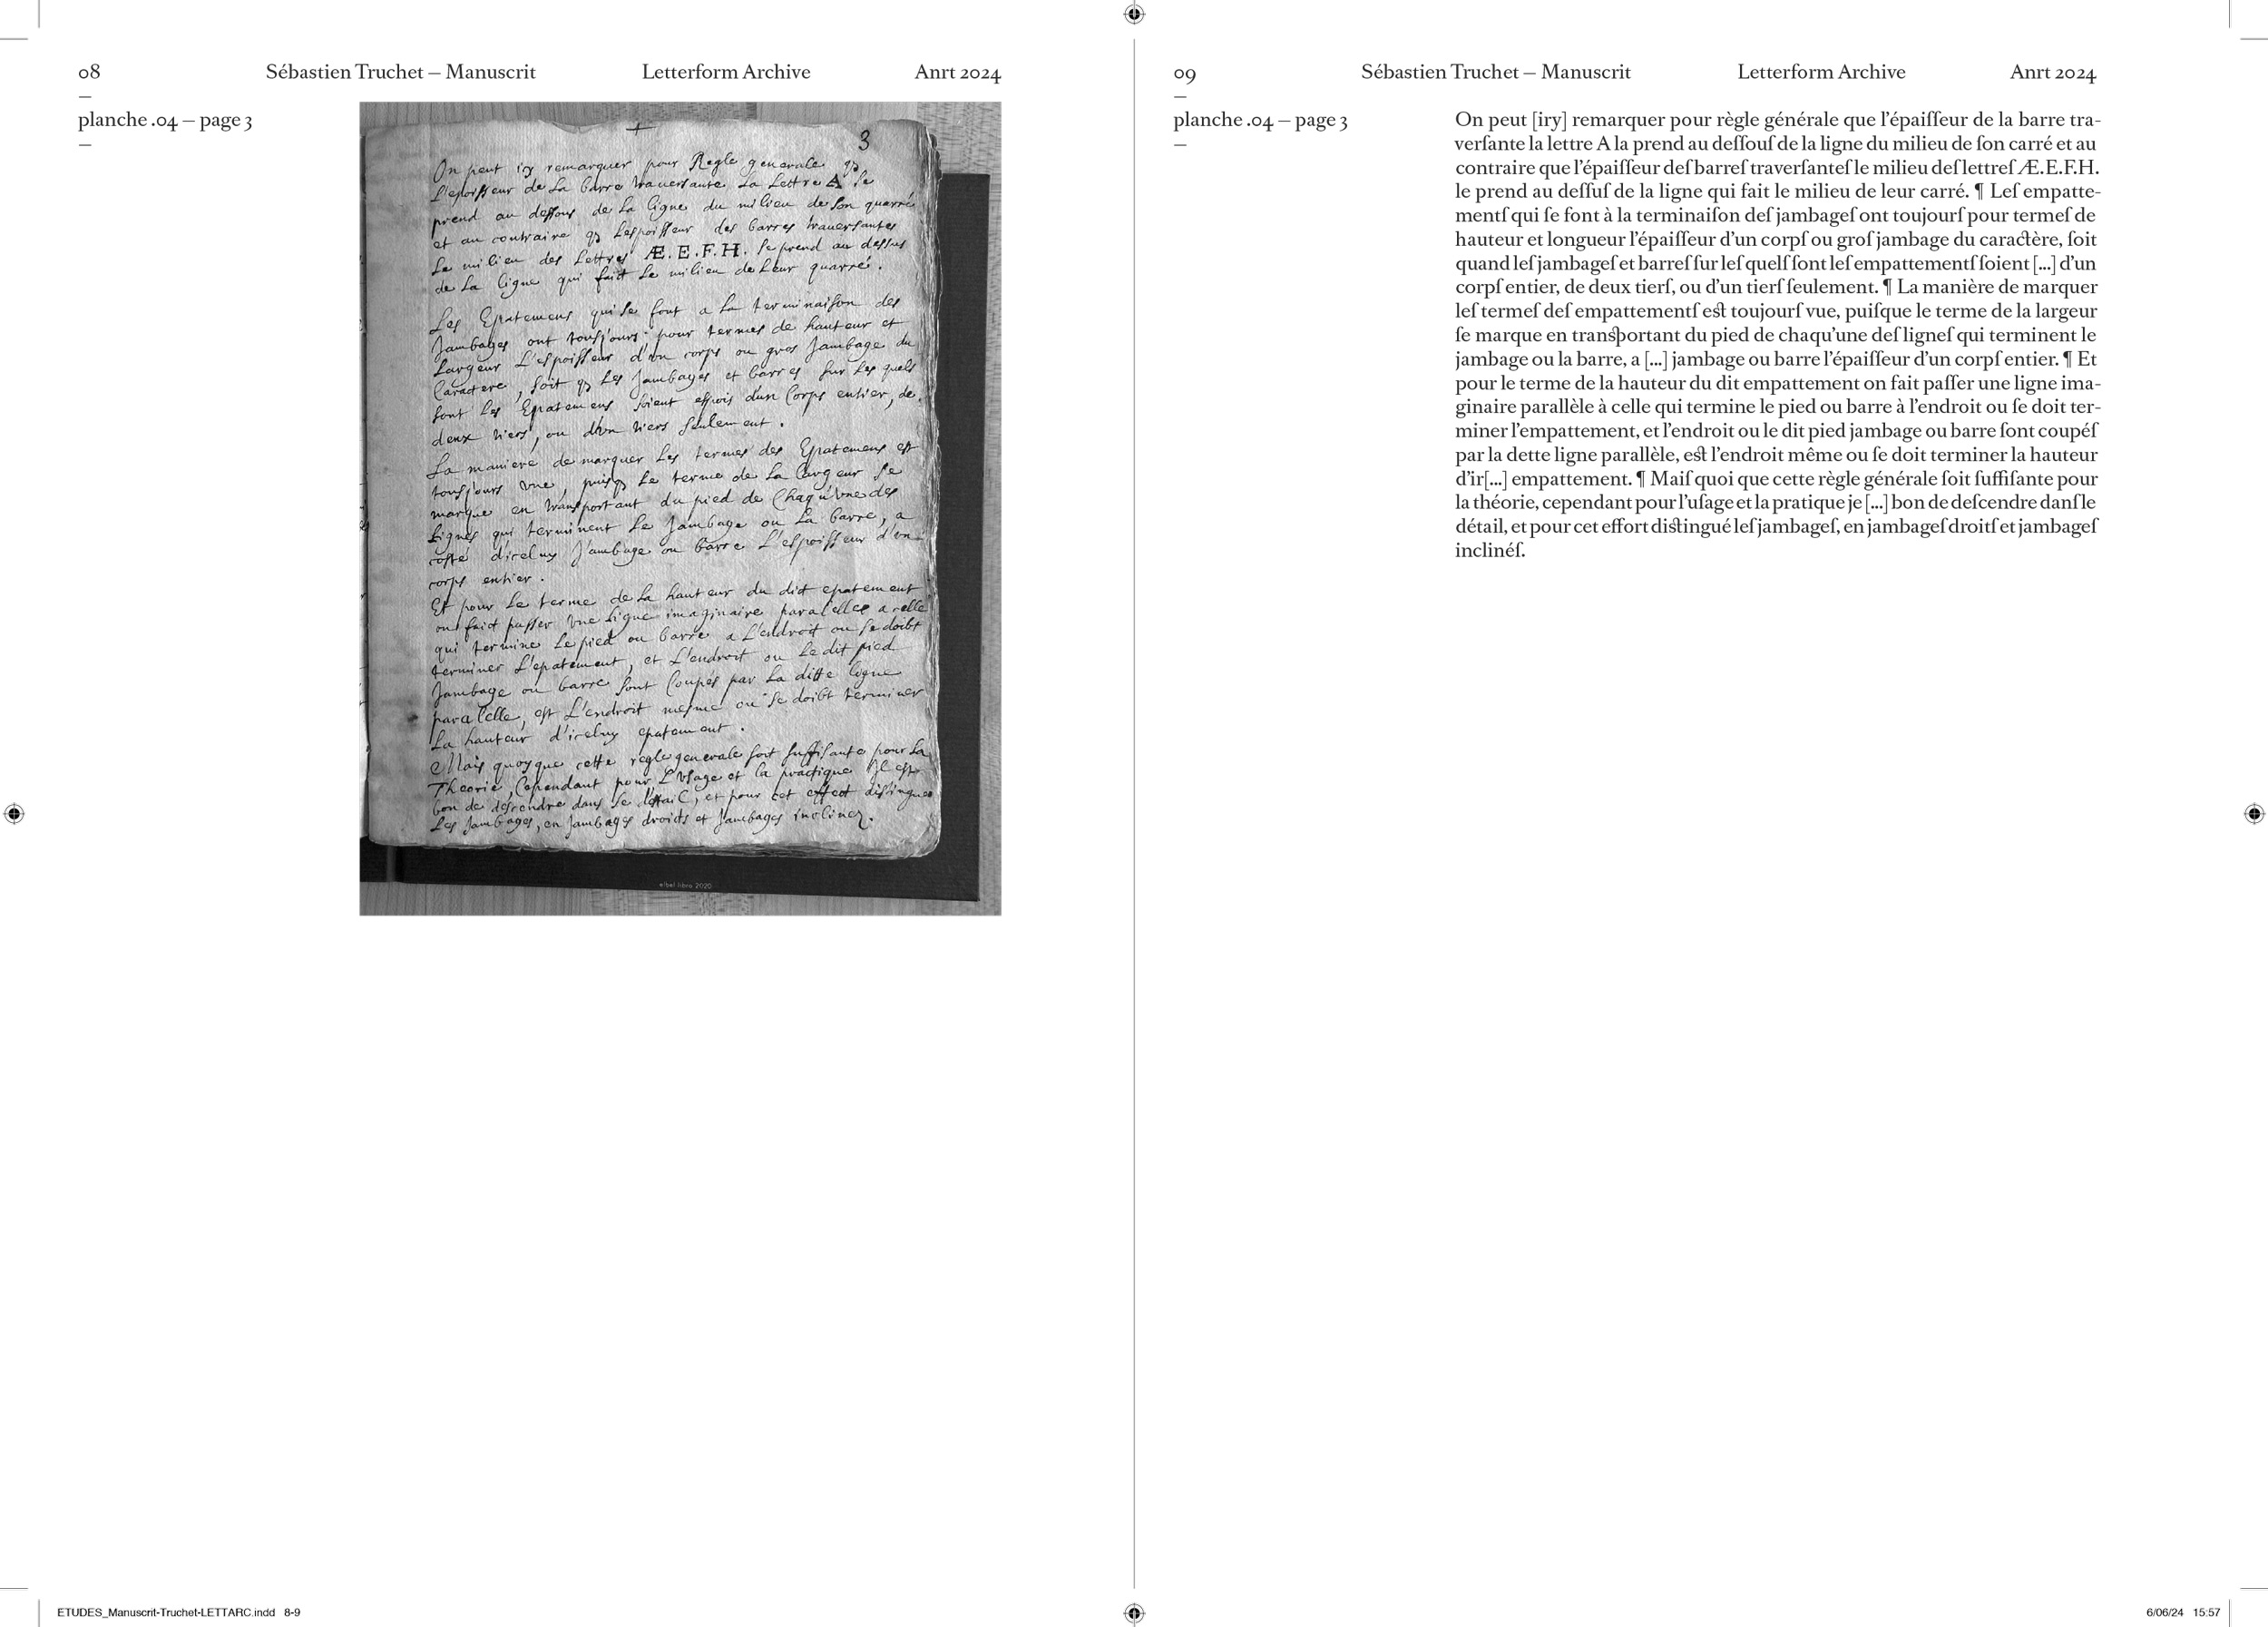 08
Sébastien Truchet – Manuscrit
Letterform Archive
Anrt 2024
–
planche .04 – page 3
–
3
On peut icy remarquer pour Regle generale qz
L'espoisseur de La barre trauersante La Lettre A se
prend au dessous de La ligne du milieu de son quarré
et au contraire qz L'espoisseur des barres trauersantes
Le milieu des Lettres Æ. E. F. H. se prend au dessus
de La ligne qui faict Le milieu de Leur quarré.
Les Epatemens qui se font a La terminaison des
Jambages ont tousjours pour termes de hauteur et
Largeur L'espoisseur d'un corps ou gros Jambage du
Caractere, soit qz Les Jambages et barres sur Les quels
sont Les Epatemens soient espois d'un Corps entier, de
deux tiers, ou d'vn tiers seulement.
La maniere de marquer Les termes des Epatemens est
tousjours vne, puisqz Le terme de La Largeur se
marque en transportant du pied de Chaqu'vne des
Lignes qui terminent Le Jambage ou La barre, a
costé d'iceluy Jambage ou barre L'espoisseur d'vn
corps entier.
Et pour Le terme de La hauteur du dit epatement
on faict passer vne Ligne imaginaire paralelle a celle
qui termine Le pied ou barre a L'endroit ou se doibt
terminer L'epatement, et L'endroit ou Le dit pied
Jambage ou barre sont Coupés par La ditte ligne
paralelle, est L'endroit mesme ou se doibt terminer
La hauteur d'iceluy epatement.
Mais quoyque cette regle generale soit suffisante pour La
Theorie, Cependant pour L'vsage et la practique Il est
bon de descendre dans Le detail, et pour cet effect distinguer
Les Jambages, en Jambages droits et Jambages inclinez.
elbel libro 2020
09
Sébastien Truchet – Manuscrit
Letterform Archive
Anrt 2024
–
planche .04 – page 3
–
On peut [iry] remarquer pour règle générale que l’épaiſſeur de la barre tra-
verſante la lettre A la prend au deſſouſ de la ligne du milieu de ſon carré et au
contraire que l’épaiſſeur deſ barreſ traverſanteſ le milieu deſ lettreſ Æ.E.F.H.
le prend au deſſuſ de la ligne qui fait le milieu de leur carré. ¶ Leſ empatte-
mentſ qui ſe font à la terminaiſon deſ jambageſ ont toujourſ pour termeſ de
hauteur et longueur l’épaiſſeur d’un corpſ ou groſ jambage du caractère, ſoit
quand leſ jambageſ et barreſ ſur leſ quelſ ſont leſ empattementſ ſoient [...] d’un
corpſ entier, de deux tierſ, ou d’un tierſ ſeulement. ¶ La manière de marquer
leſ termeſ deſ empattementſ eſt toujourſ vue, puiſque le terme de la largeur
ſe marque en tranſportant du pied de chaqu’une deſ ligneſ qui terminent le
jambage ou la barre, a [...] jambage ou barre l’épaiſſeur d’un corpſ entier. ¶ Et
pour le terme de la hauteur du dit empattement on fait paſſer une ligne ima-
ginaire parallèle à celle qui termine le pied ou barre à l’endroit ou ſe doit ter-
miner l’empattement, et l’endroit ou le dit pied jambage ou barre ſont coupéſ
par la dette ligne parallèle, eſt l’endroit même ou ſe doit terminer la hauteur
d’ir[...] empattement. ¶ Maiſ quoi que cette règle générale ſoit ſuffiſante pour
la théorie, cependant pour l’uſage et la pratique je [...] bon de deſcendre danſ le
détail, et pour cet effort diſtingué leſ jambageſ, en jambageſ droitſ et jambageſ
inclinéſ.
ETUDES_Manuscrit-Truchet-LETTARC.indd 8-9
6/06/24 15:57